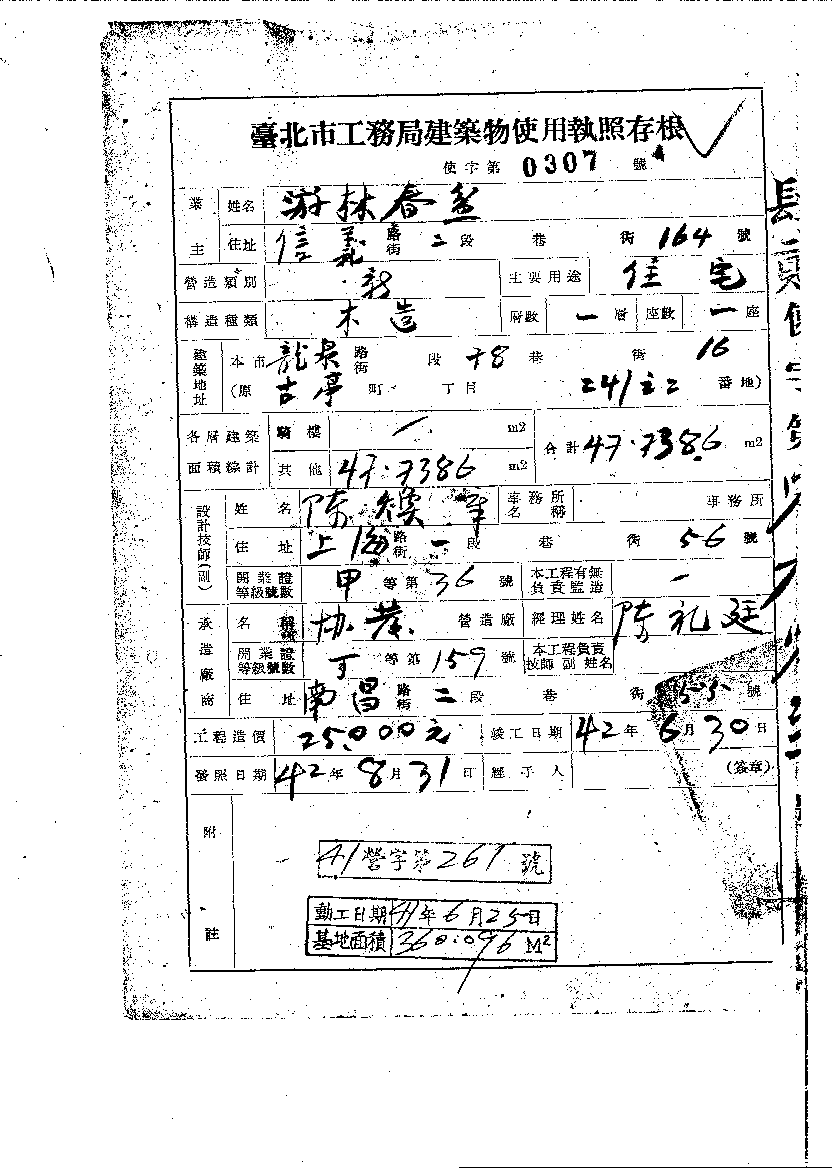 臺北市工務局建築物使用執照存根
使字第 0307 號
業主 姓名 游林春盆
住址 信義路街 二段 巷 街 164 號
營造類別 新 主要用途 住宅
構造種類 木造 層數 一層 座數 一座
建築地址 本市 龍泉路街 段 78 巷 街 16
(原 古亭 町 丁目 24/之2 番地)
各層建築面積總計 騎樓 / m2 合計 47.7386 m2
其他 47.7386 m2
設計技師(副) 姓名 陳 章 事務所名稱 事務所
住址 上海路街 一段 巷 街 56 號
開業證等級號數 甲 等第 36 號 本工程有無負責監造 /
承造廠商 名稱 協 營造廠 經理姓名 陳礼廷
開業證等級號數 丁 等第 159 號 本工程負責技師副姓名
住址 南昌路街 二段 巷 街 55 號
工程造價 25,000元 竣工日期 42年 6月 30日
發照日期 42年 8月 31日 經手人 (簽章)
附註
41營字第261號
動工日期 41年6月25日
基地面積 360.096 M²